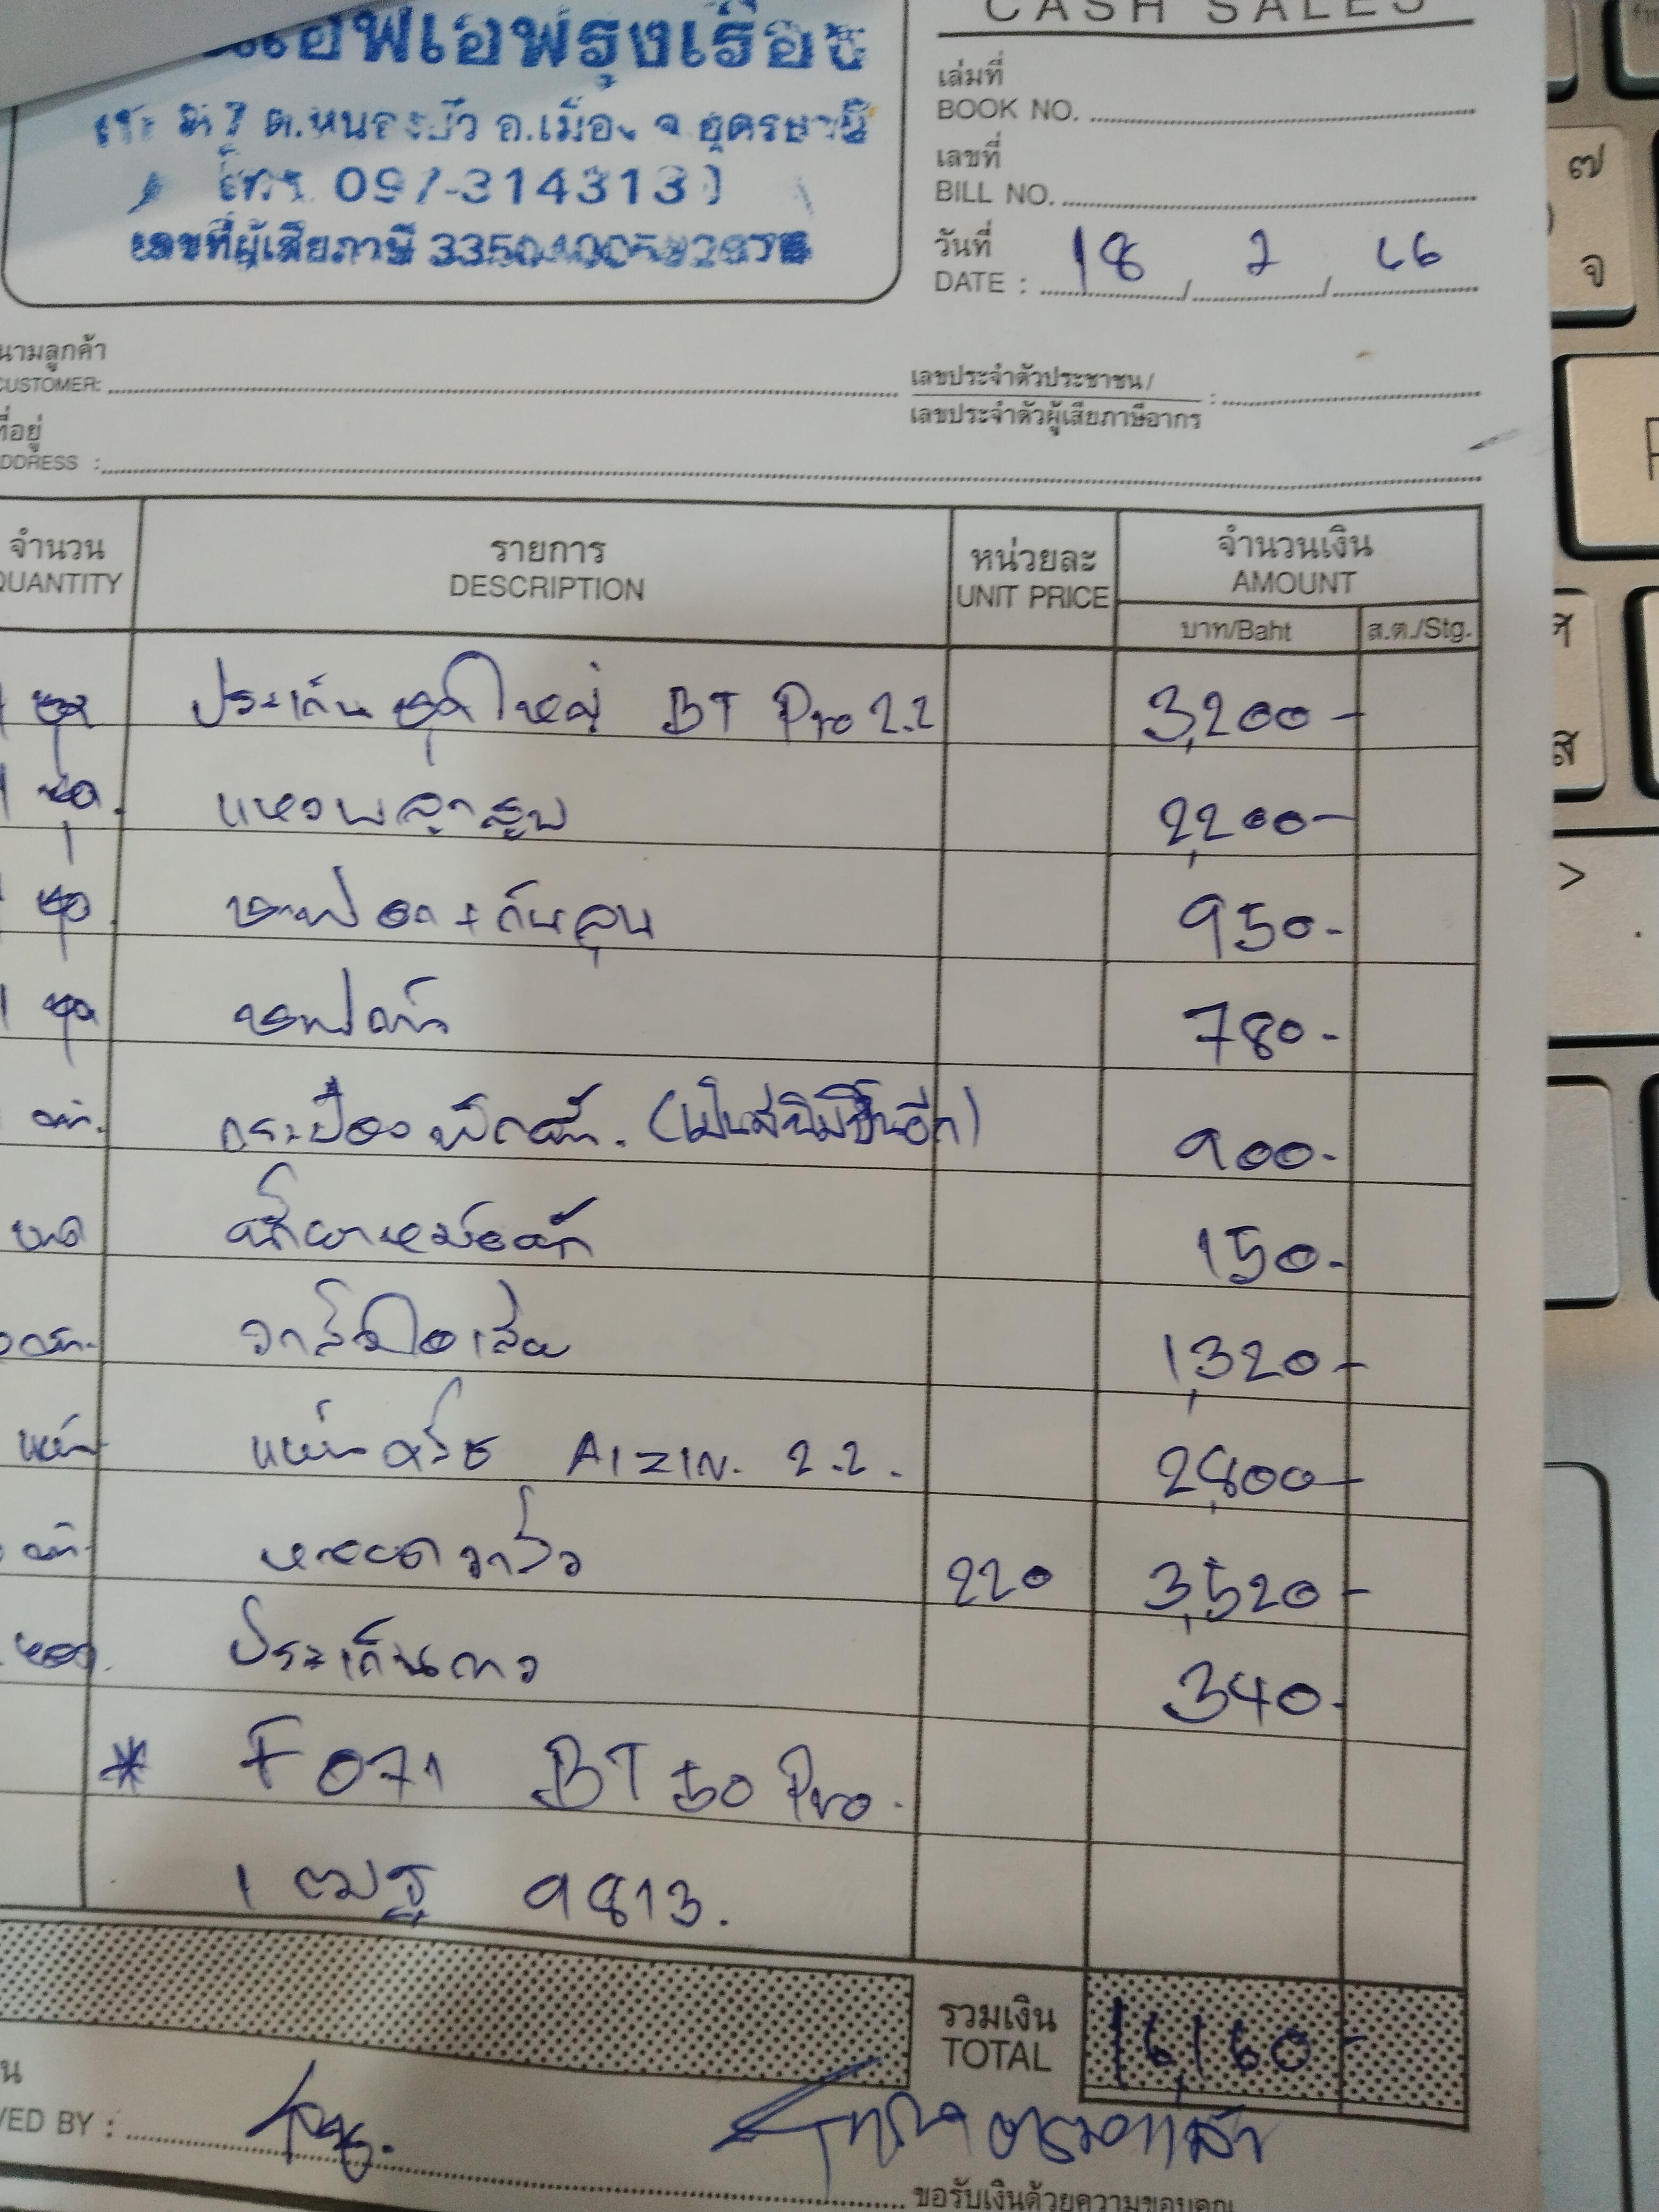 CASH SALES
เอฟเอพรุ่งเรือง
ต.หนองบัว อ.เมือง จ.อุดรธานี
โทร. 097-314313
เลขที่ผู้เสียภาษี
เล่มที่
BOOK NO.
เลขที่
BILL NO.
วันที่
DATE : 18 / 2 / 66
นามลูกค้า
CUSTOMER:
เลขประจำตัวประชาชน/
เลขประจำตัวผู้เสียภาษีอากร :
ที่อยู่
ADDRESS :
จำนวน รายการ หน่วยละ จำนวนเงิน
QUANTITY DESCRIPTION UNIT PRICE AMOUNT
บาท/Baht ส.ต./Stg.
1 ชุด ประเก็นชุดใหญ่ BT Pro 2.2 3,200-
1 ชุด. แหวนลูกสูบ 2,200-
ชุด. ชาฟอก+กันรุน 950-
1 ชุด ชาฟก้าน 780-
900-
ขวด น้ำยาหม้อน้ำ 150-
วาล์วไอเสีย 1,320-
แหวน AIZIN. 2.2. 2,800-
220 3,520-
ประเก็นกาว 340-
* F071 BT 50 Pro.
1 ฒฐ 9813.
รวมเงิน
TOTAL 16,160-
VED BY :
ขอรับเงินด้วยความขอบคุณ